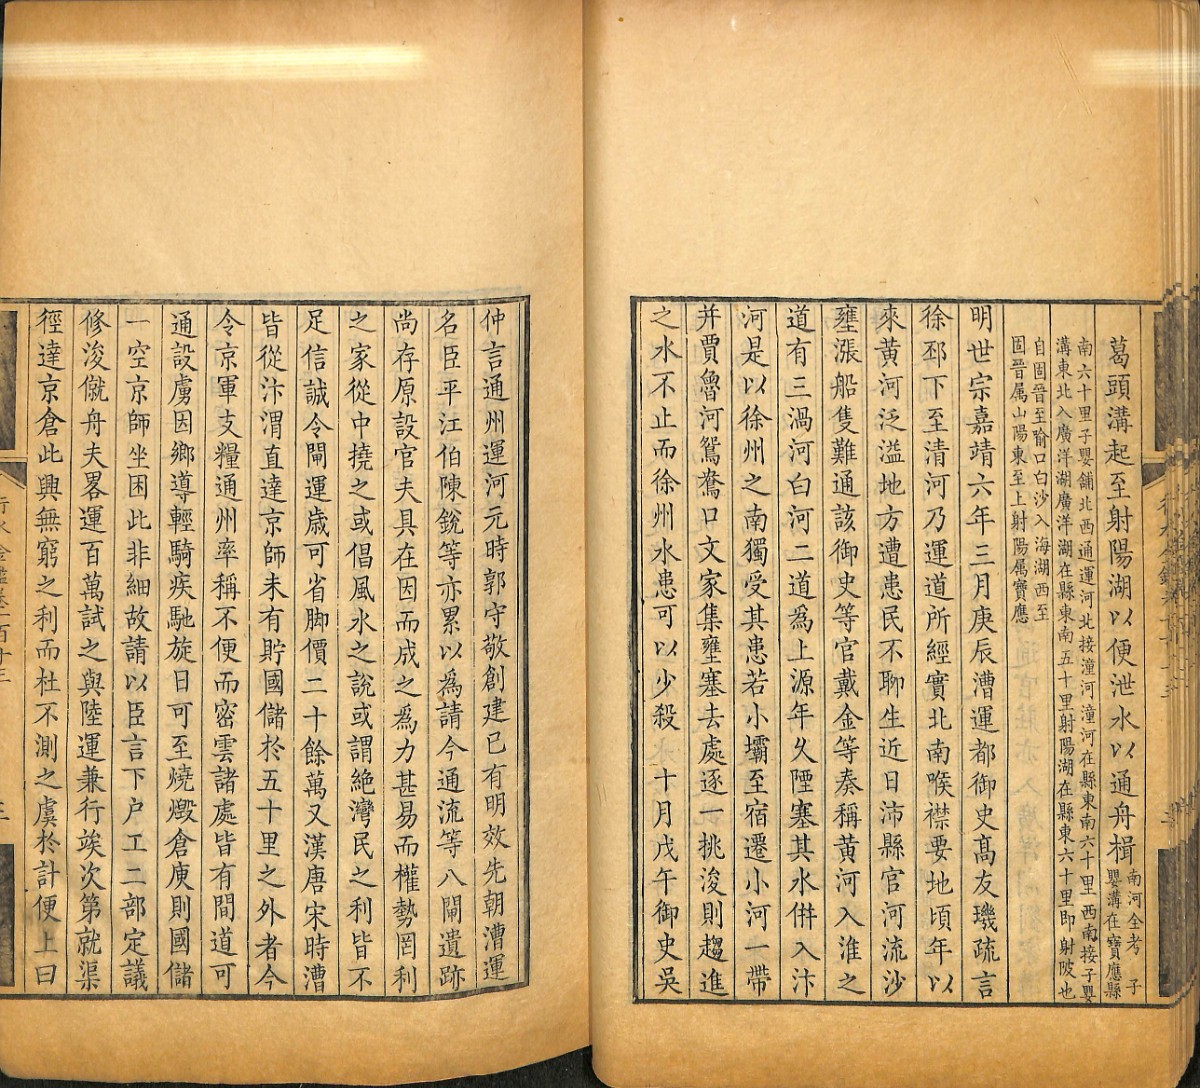 葛頭溝起至射陽湖以便泄水以通舟楫南河全考子嬰溝在寶應縣
南六十里子嬰舖北西通運河北接潼河潼河在縣東南六十里西南接子嬰
溝東北入廣洋湖廣洋湖在縣東南五十里射陽湖在縣東六十里即射陂也
自固晉至喻口白沙入海湖西至
固晉属山陽東至上射陽属寶應
明世宗嘉靖六年三月庚辰漕運都御史髙友璣疏言
徐邳下至清河乃運道所經實北南喉襟要地頃年以
來黄河泛溢地方遭患民不聊生近日沛縣官河流沙
壅漲船隻難通該御史等官戴金等奏稱黄河入淮之
道有三渦河白河二道為上源年久陻塞其水併入汴
河是以徐州之南獨受其患若小壩至宿遷小河一帶
并賈魯河鴛鴦口文家集壅塞去處逐一挑浚則趨進
之水不止而徐州水患可以少殺　十月戊午御史吳
仲言通州運河元時郭守敬創建已有明效先朝漕運
名臣平江伯陳銳等亦累以為請今通流等八閘遺跡
尚存原設官夫具在因而成之為力甚易而權勢罔利
之家從中撓之或倡風水之說或謂絶灣民之利皆不
足信誠令閘運歲可省脚價二十餘萬又漢唐宋時漕
皆從汴渭直達京師未有貯國儲於五十里之外者今
令京軍支糧通州率稱不便而密雲諸處皆有間道可
通設虜因鄉導輕騎疾馳旋日可至燒燬倉庾則國儲
一空京師坐困此非細故請以臣言下户工二部定議
修浚僦舟夫畧運百萬試之與陸運兼行竢次第就渠
徑達京倉此興無窮之利而杜不測之虞於計便上曰
行水金鑑卷一百十三